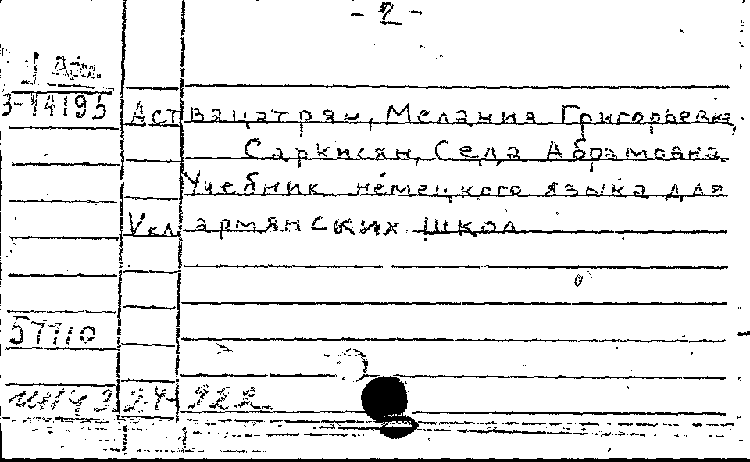 - 2 -
Арм.
3-14195
Аствацатрян, Мелания Григорьевна,
Саркисян, Седа Абрамовна.
Учебник немецкого языка для
Vкл армянских школ
57710